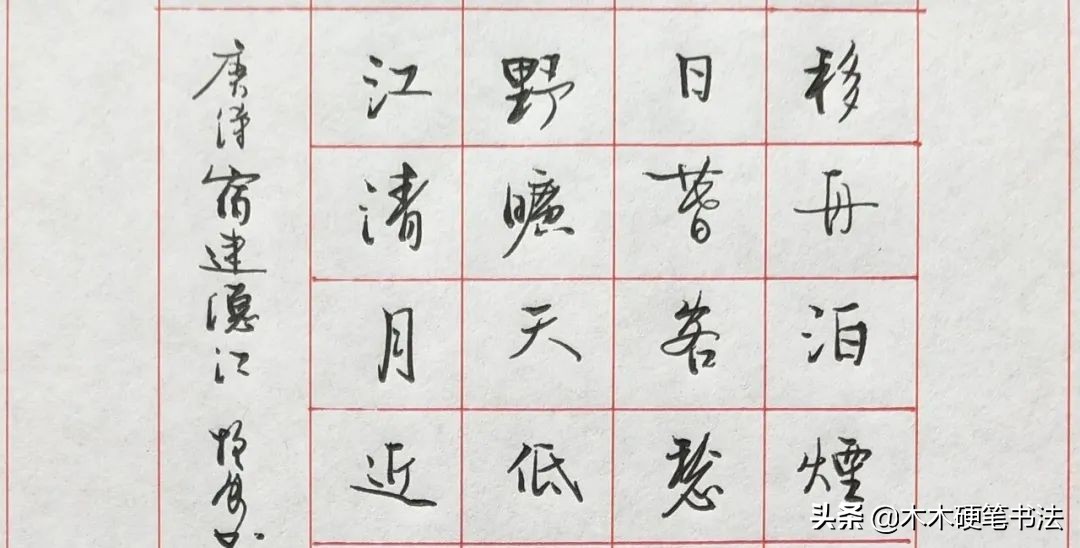 移舟泊煙
日暮客愁
野曠天低
江清月近
唐诗宿建德江
头条 @木木硬笔书法